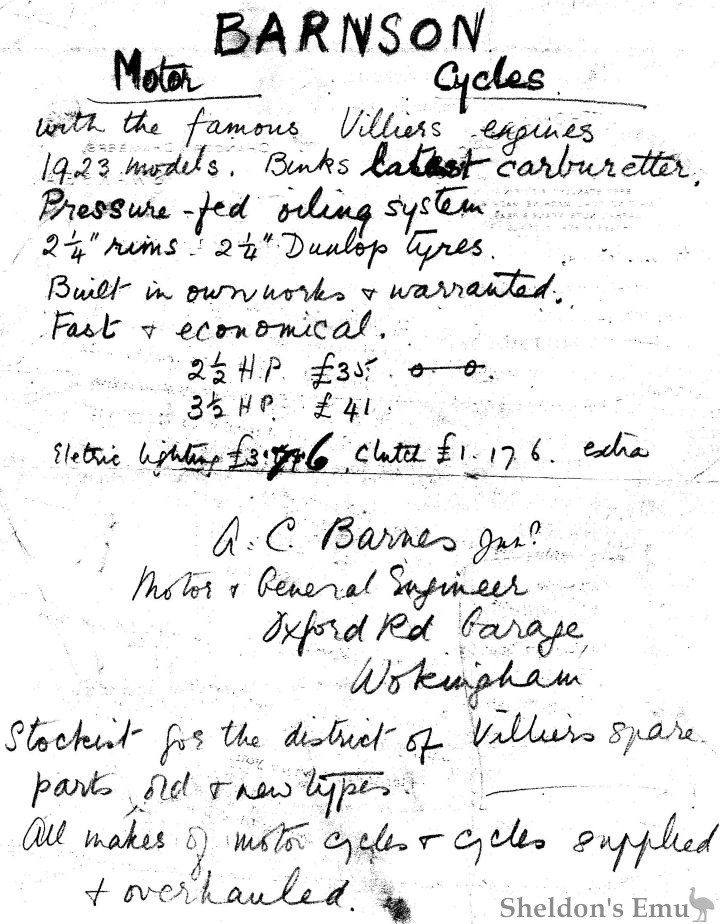 BARNSON
Motor Cycles
with the famous Villiers engines
1923 models. Binks latest carburetter.
Pressure-fed oiling system
2¼" rims 2¼" Dunlop tyres.
Built in own works + warranted.
Fast + economical.
2½ H.P. £35. o—o.
3½ HP. £41
Eletric lighting £3.7.6. Clutch £1.17 6. extra
A. C. Barnes Junr
Motor + General Engineer
Oxford Rd Garage
Wokingham
Stockist for the district of Villiers spare
parts, old + new types.
All makes of motor cycles + cycles supplied
+ overhauled.
Sheldon's Emu